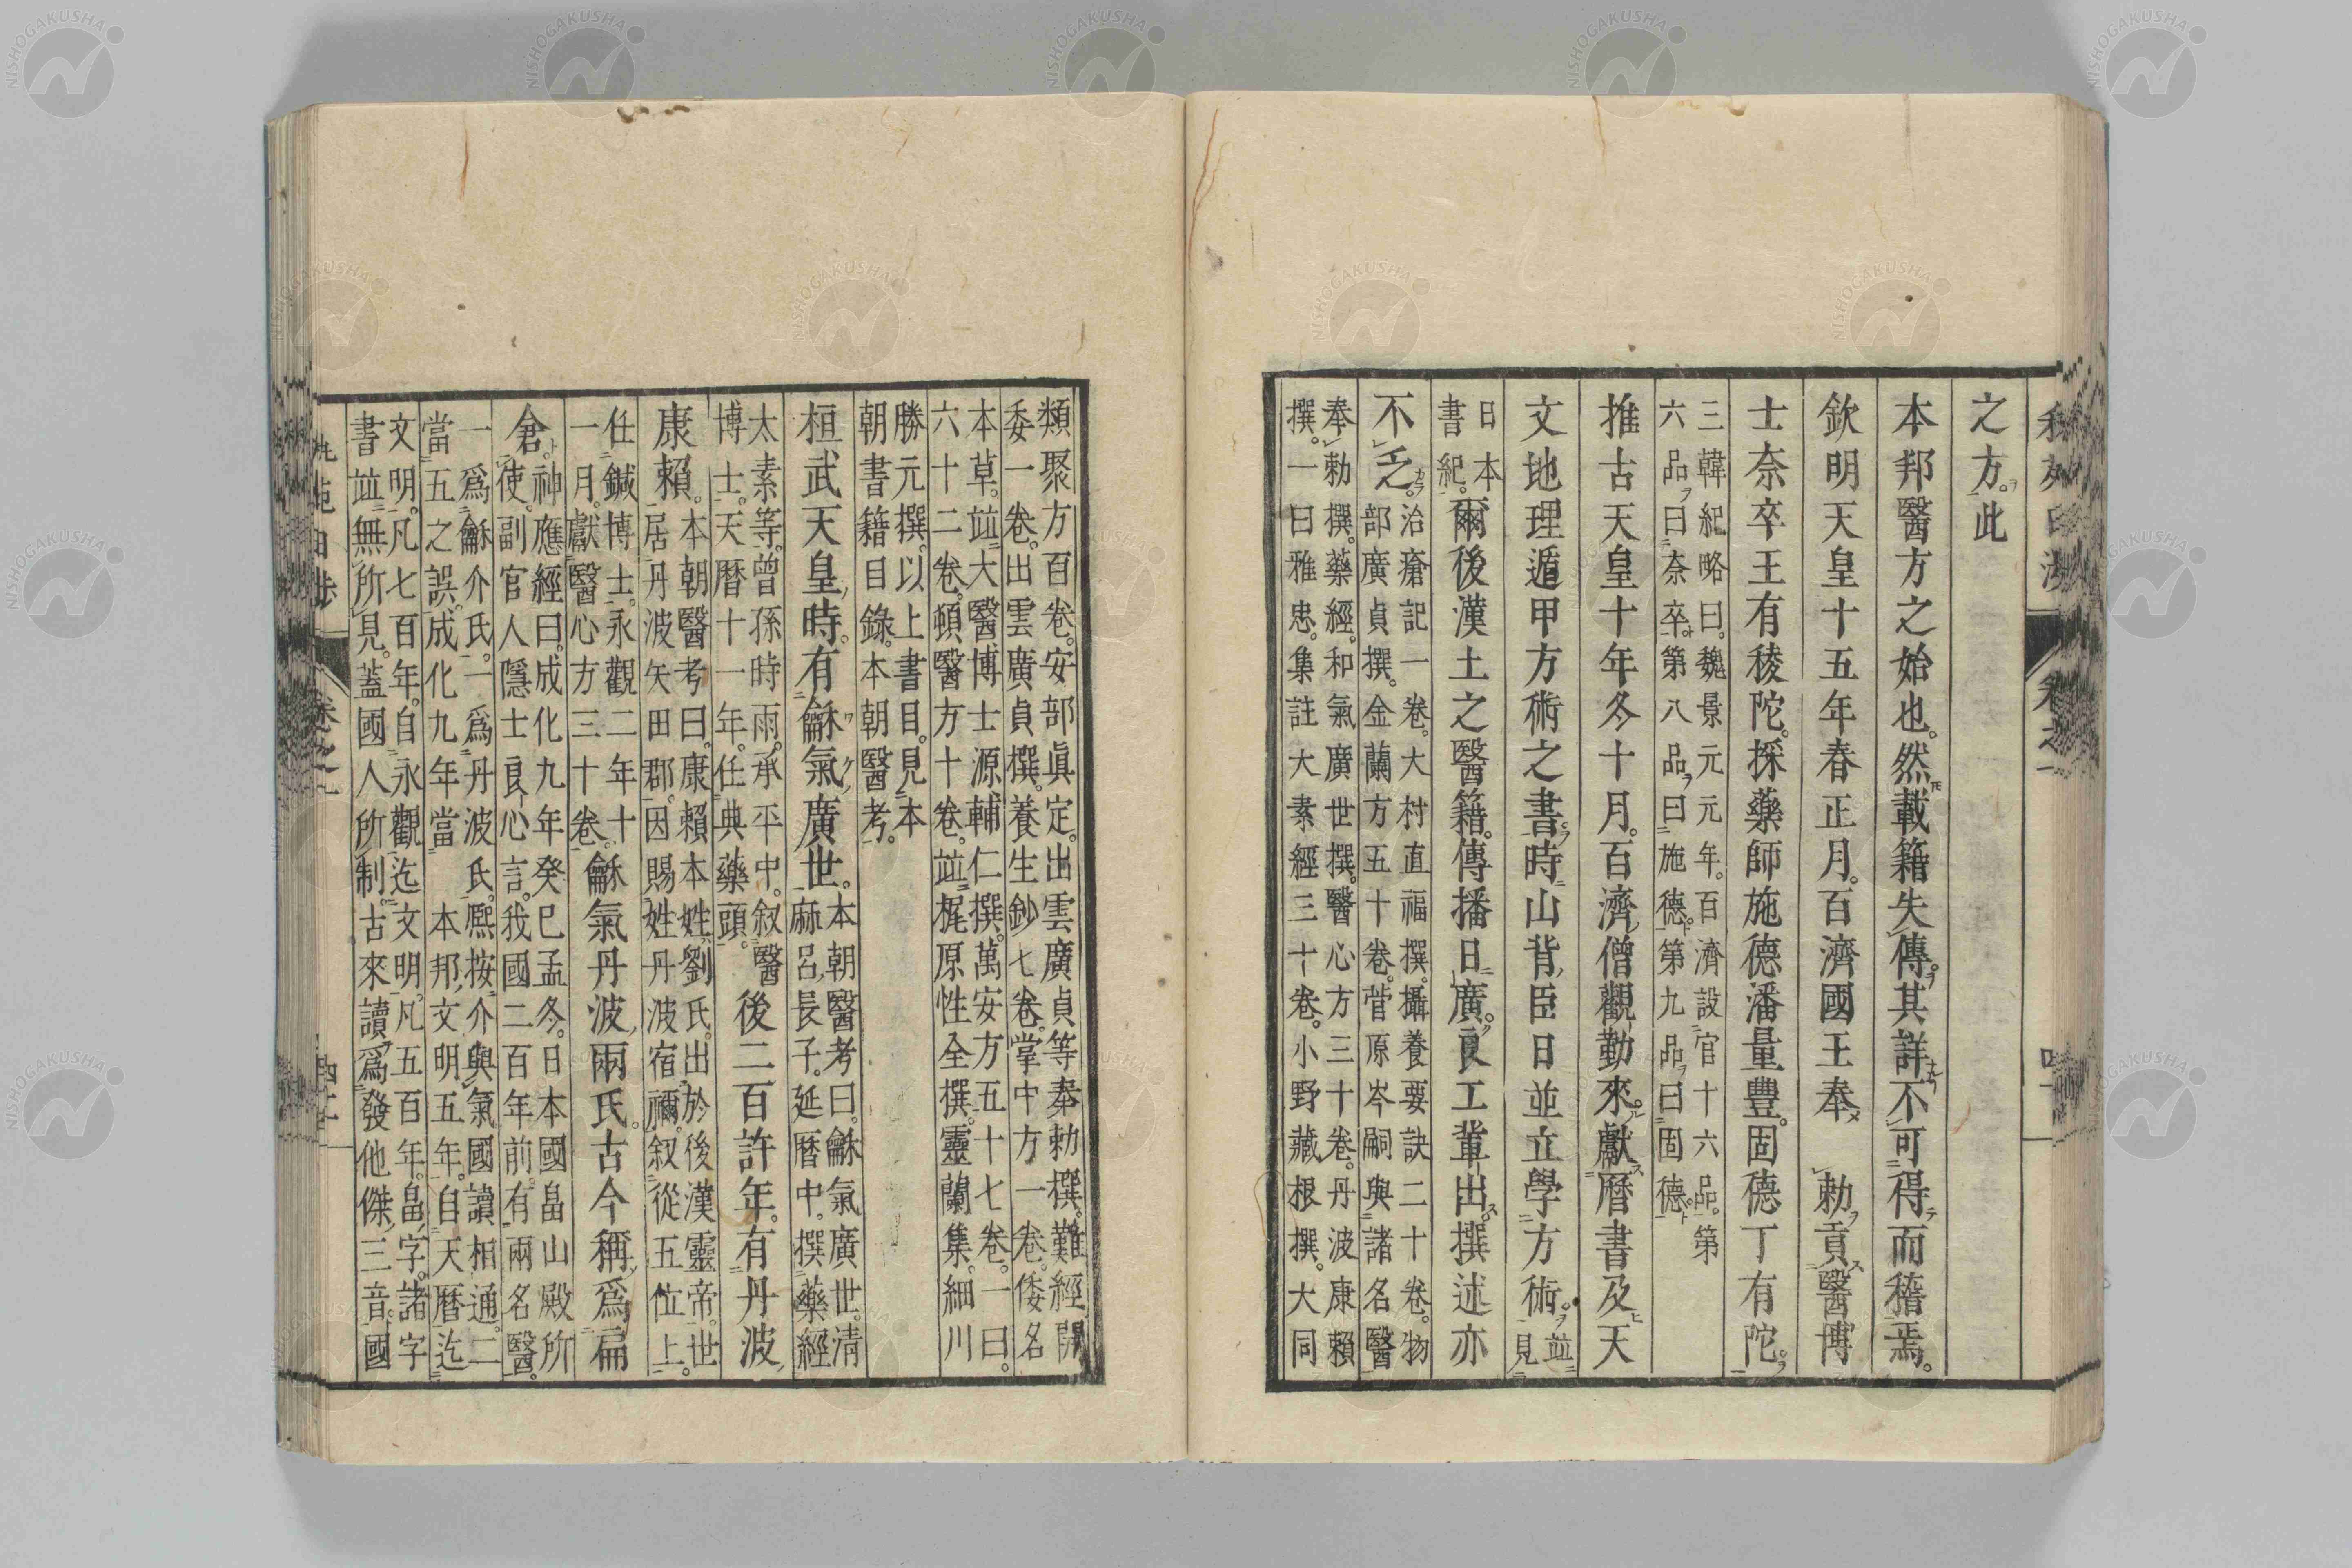 之方。此
本邦醫方之始也。然載籍失傳。其詳不可得而稽焉。
欽明天皇十五年春正月。百濟國王奉 勅貢醫博
士奈卒王有㥄陀。採藥師施德潘量豐。固德丁有陀。
三韓紀略曰。魏景元元年。百濟設官十六品。第
六品曰奈卒。第八品曰施德。第九品曰固德。
推古天皇十年冬十月。百濟僧觀勤來。獻曆書及天
文地理遁甲方術之書。時山背臣日並立學方術。竝見
日本書紀。爾後漢土之醫籍。傳播日廣。良工輩出。撰述亦
不乏。治瘡記一卷。大村直福撰。攝養要訣二十卷。物
部廣貞撰。金蘭方五十卷。菅原岑嗣與諸名醫
奉勅撰。藥經。和氣廣世撰。醫心方三十卷。丹波康賴
撰。一曰雅忠。集註大素經三十卷。小野藏根撰。大同
類聚方百卷。安部眞定。出雲廣貞等奉勅撰。難經開
委一卷。出雲廣貞撰。養生鈔七卷。掌中方一卷。倭名
本草。竝大醫博士源輔仁撰。萬安方五十七卷。一曰。
六十二卷。頓醫方十卷。竝梶原性全撰。靈蘭集。細川
勝元撰。以上書目。見本
朝書籍目錄。本朝醫考。
桓武天皇時。有龢氣廣世。本朝醫考曰。龢氣廣世。清
麻呂長子。延曆中。撰藥經
太素等。曾孫時雨。承平中。叙醫
博士。天曆十一年。任典藥頭。後二百許年。有丹波
康賴。本朝醫考曰。康賴本姓劉氏。出於後漢靈帝。世
居丹波矢田郡。因賜姓丹波宿禰。叙從五位上。
任鍼博士。永觀二年十
一月。獻醫心方三十卷。龢氣丹波兩氏。古今稱爲扁
倉。神應經曰。成化九年癸巳孟冬。日本國畠山殿所
使。副官人隱士良心言。我國二百年前。有兩名醫。
一爲龢介氏。一爲丹波氏。熈按。介與氣國讀相通。二
當五之誤。成化九年當 本邦文明五年。自天曆迄
文明。凡七百年。自永觀迄文明。凡五百年。畠字。諸字
書竝無所見。蓋國人所制。古來讀爲發他傑三音。國